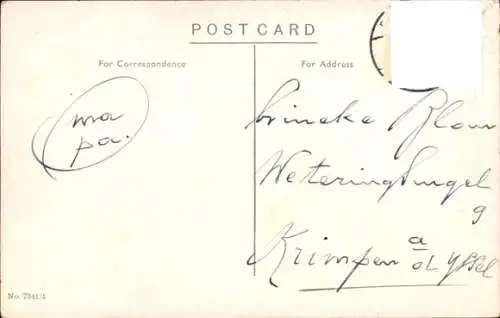 POST CARD
For Correspondence
For Address
ma
pa.
Krimpen a/d Yssel
Weteringsingel
9
No. 7341/1